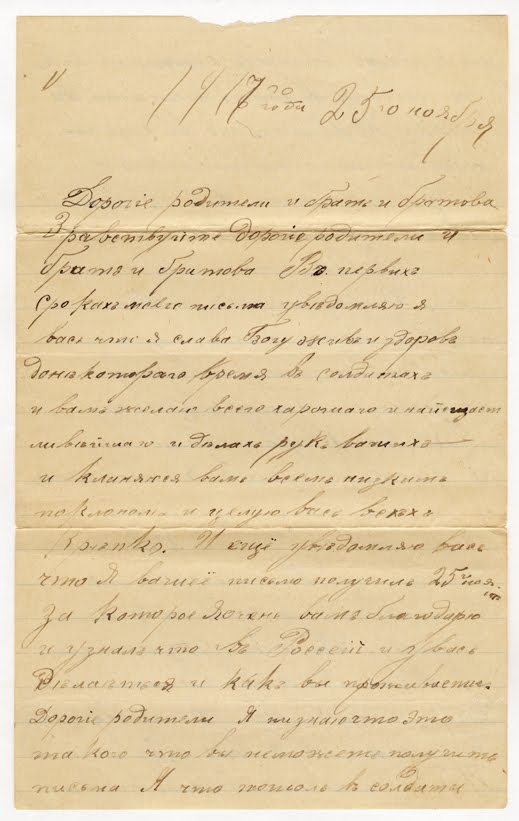 1917го года 25го ноября
Дорогіе родители и братъ и братова
Здравствуйте Дорогіе родители и
братъ и братова Въ первихъ
строкахъ моего письма увѣдомляю я
васъ что я слава Богу живъ и здоровъ
время въ солдатахъ
и вамъ желаю всего харошаго и
и дѣлахъ рукъ вашихъ
и кланяюся вамъ всемъ низкимъ
поклономъ и целую васъ всѣхъ
Крѣпко. И ещё увѣдомляю васъ
что Я вашеё письмо получилъ 25го
За Которое я очень вамъ благодарю
и узналъ что Въ Россеіи и у васъ
Дѣлаеться и какъ вы
Дорогіе родители Я низнаю что это
такого что вы неможете получить
письма Я что въ солдаты